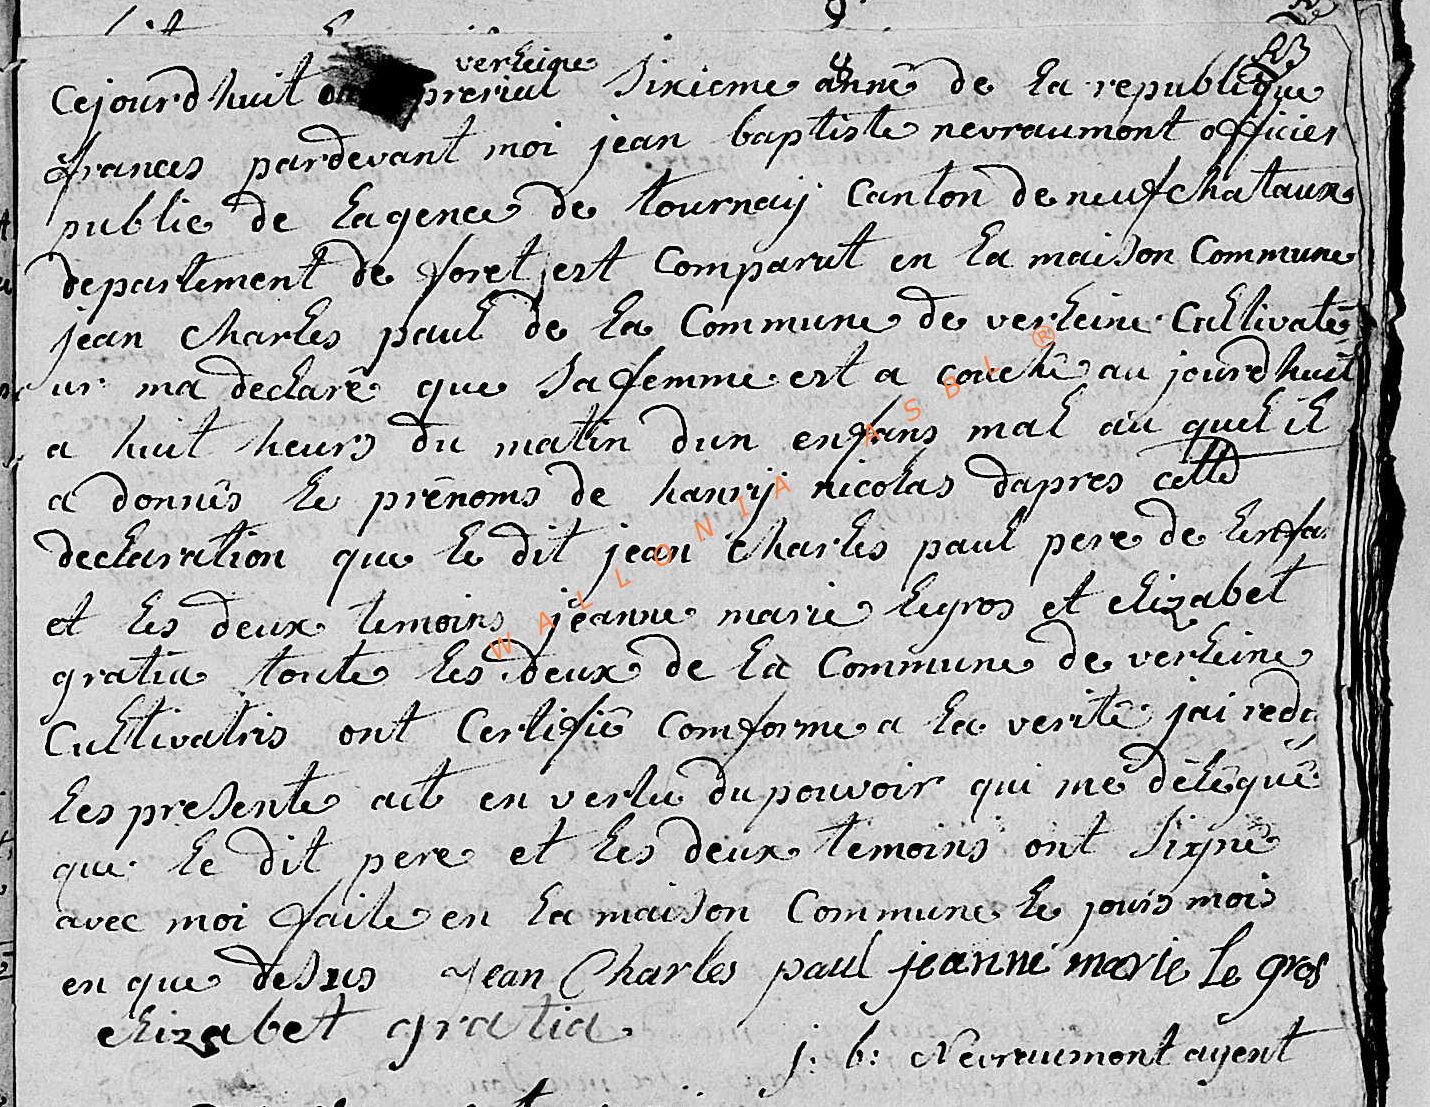 verleine 8 23
Cejourdhuit prerial Sixieme anné de la republique
frances pardevant moi jean baptiste nevraumont officier
public de lagence de tournaij Canton de neufchataux
departement de foret est Comparut en la maison Commune
jean charles paul de la Commune de verleine Cultivate
ur ma declaré que Sa femme est a couché au jourdhuit
a huit heurs du matin dun enfans mal au quel il
a donnés le prénoms de hanrij nicolas dapres cette
declaration que le dit jean charles paul pere de lenfa
et les deux temoins jeanne marie legros et elizabet
gratia toute les deux de la Commune de verleine
Cultivatris ont Certifié Comforme a la verité jai redg
les presente act en vertu du pouvoir qui me délégué
que le dit pere et les deux temoins ont Signé
avec moi faite en la maison Commune le jours mois
en que desus jean Charles paul jeanne marie le gros
elizabet gratia
j: b: Nevraumont agent
WALLONIA ASBL ®